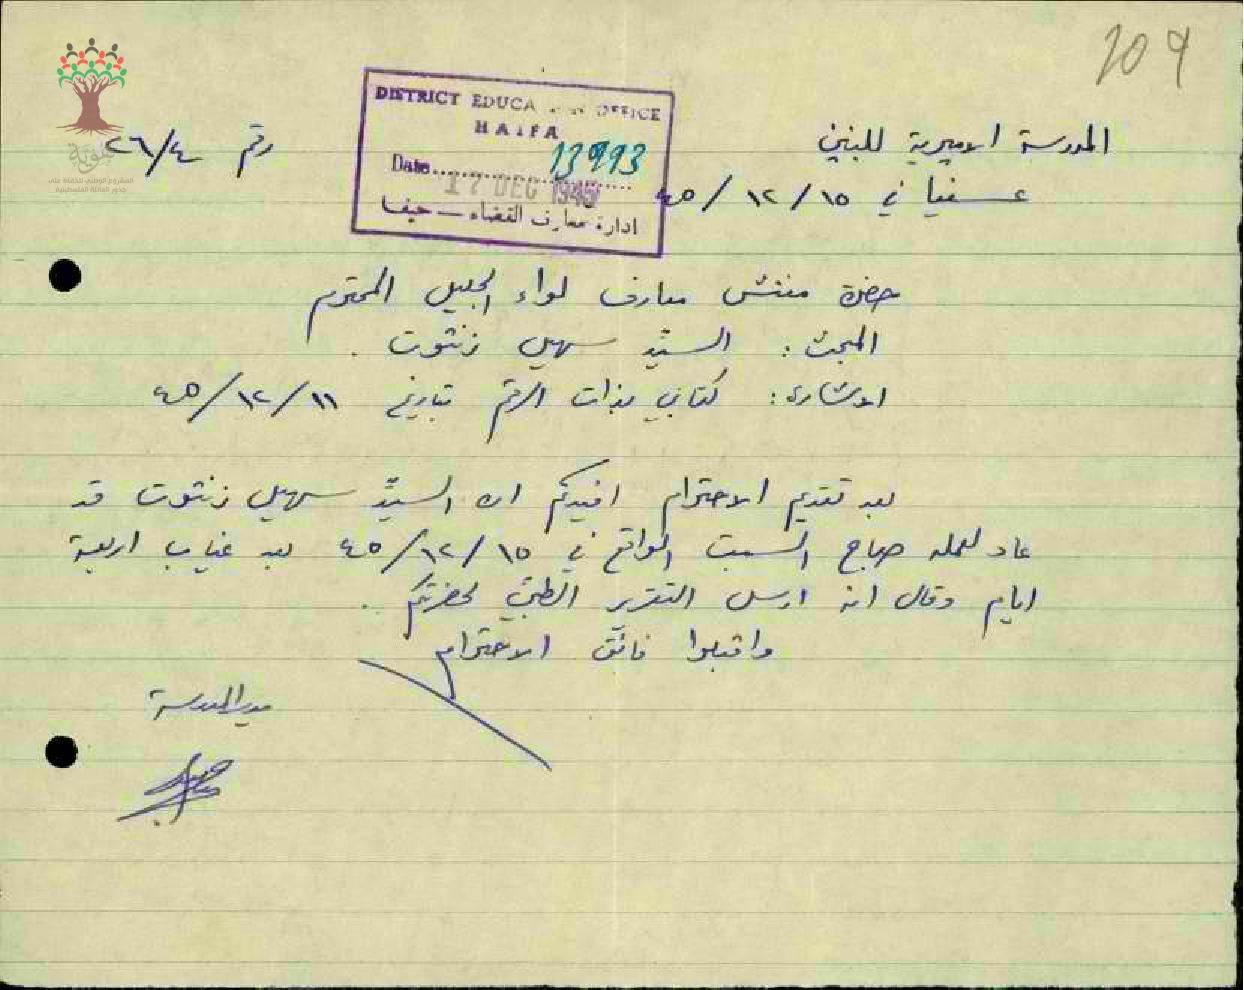 209
المدرسة الاميرية للبنين
رقم ٢٦/٤
عسفيا في ١٥/١٢/٤٥
DISTRICT EDUCA OFFICE
HAIFA
13993
Date
17 DEC 1945
ادارة معارف القضاء – حيفا
هوية
المشروع الوطني للحفاظ على
جذور العائلة الفلسطينية
حضرة مفتش معارف لواء الجليل المحترم
المبحث: السيّد سهيل زنتوت.
الاشارة: كتابي بذات الرقم تاريخ ١١/١٢/٤٥
بعد تقديم الاحترام افيدكم ان السيّد سهيل زنتوت قد
عاد لعمله صباح السبت الواقع في ١٥/١٢/٤٥ بعد غياب اربعة
ايام وقال انه ارسل التقرير الطبّي لحضرتكم.
واقبلوا فائق الاحترام
مدير المدرسة